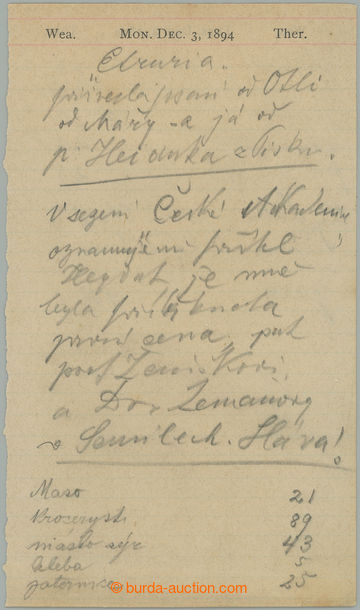 Wea. Mon. Dec. 3, 1894 Ther.
Etruria.
přivezla psaní od Otli
od Máry - a já od
p. Hejduka z Písku.
V sezení České Akademie
oznamuje mi přítel
Hejduk, je mně
byla přiřknuta
první cena,
prof. Ženíškovi
a Dru Zemanovy
v Semilech. Sláva!
Maso 21
89
máslo sýr 43
chleba 5
25
© burda-auction.com